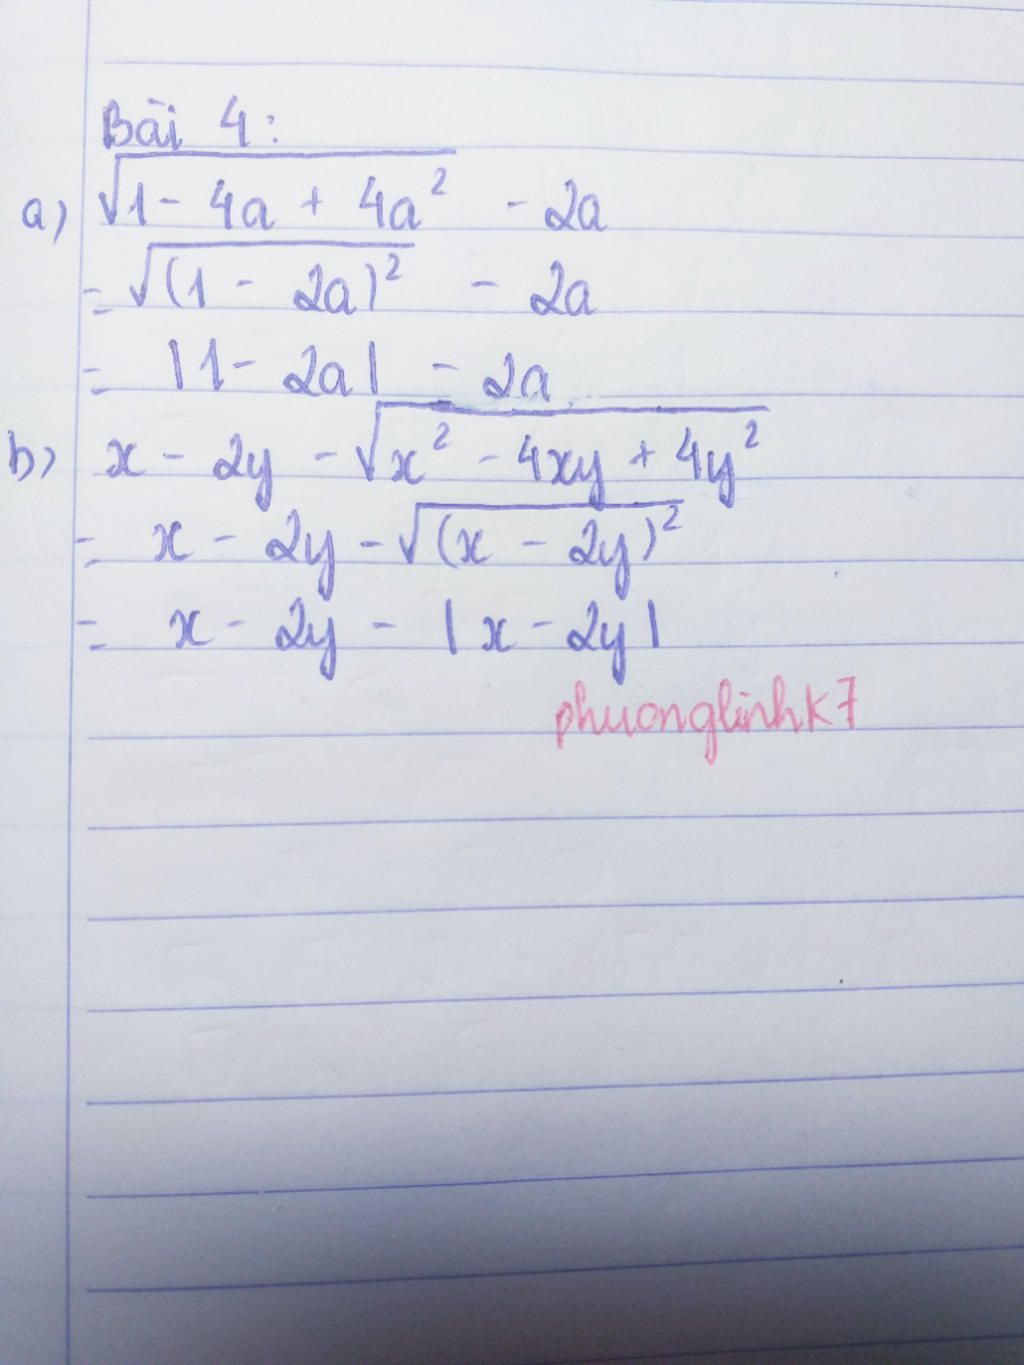 Bài 4:
a) √(1 - 4a + 4a²) - 2a
= √((1 - 2a)²) - 2a
= |1 - 2a| - 2a
b) x - 2y - √(x² - 4xy + 4y²)
= x - 2y - √((x - 2y)²)
= x - 2y - |x - 2y|
phuonglinhk7